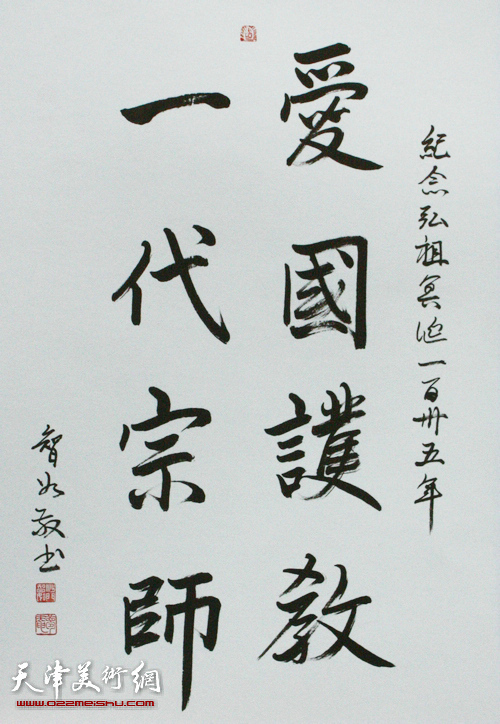 紀念弘祖冥誕一百卅五年
愛國護教
一代宗師
智如敬书
天津美術網
www.022meishu.com